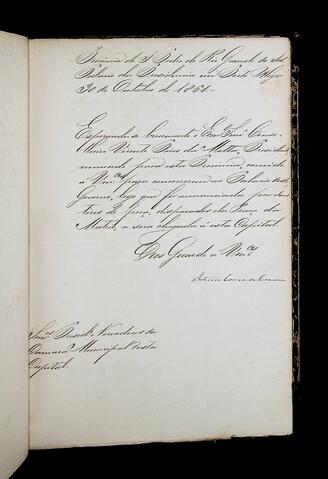 Provincia de S. Pedro do Rio Grande do Sul
Palacio da Presidencia em Porto Alegre
30 de Outubro de 1861.
Esperando-se brevemente o Exm. Snr. Conse-
lheiro Vicente Pires da Motta, Presidente
nomeado para esta Provincia, convido
a Vmces para concorrerem ao Palacio deste
Governo, logo que for annunciada por dous
tiros de peça, disparados da Praça da
Matriz, a sua chegada à esta Capital.
Deos Guarde a Vmces
Corrêa da Camara
Snres Presid. e Vereadores da
Camara Municipal desta
Capital.